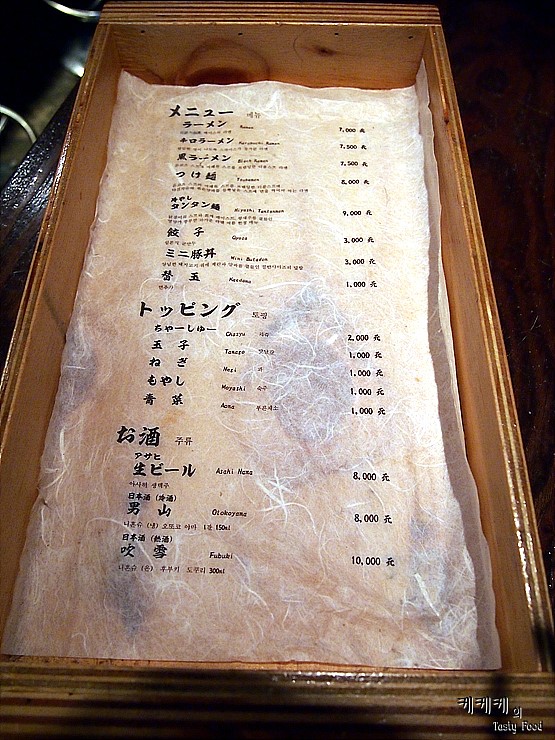 メニュー 메뉴
ラーメン Ramen 7,000 元
辛口ラーメン Karakuchi Ramen 7,500 元
黒ラーメン Black Ramen 7,500 元
つけ麺 Tsukemen 8,000 元
冷やし
タンタン麺 Hiyashi Tantanmen 9,000 元
餃子 Gyoza 3,000 元
ミニ豚丼 Mini Butadon 3,000 元
替玉 Kaedama 1,000 元
면추가
トッピング 토핑
ちゃーしゅー Chasyu 차슈 2,000 元
玉子 Tamago 맛달걀 1,000 元
ねぎ Negi 파 1,000 元
もやし Moyashi 숙주 1,000 元
青菜 Aona 푸른채소 1,000 元
お酒 주류
アサヒ
生ビール Asahi Nama 8,000 元
아사히 생맥주
日本酒 (冷酒)
男山 Otokoyama 8,000 元
니혼슈 (냉) 오또코 야마 1잔 150ml
日本酒 (熱酒)
吹雪 Fubuki 10,000 元
니혼슈 (온) 후부키 도쿠리 300ml
케케케의
Tasty Food